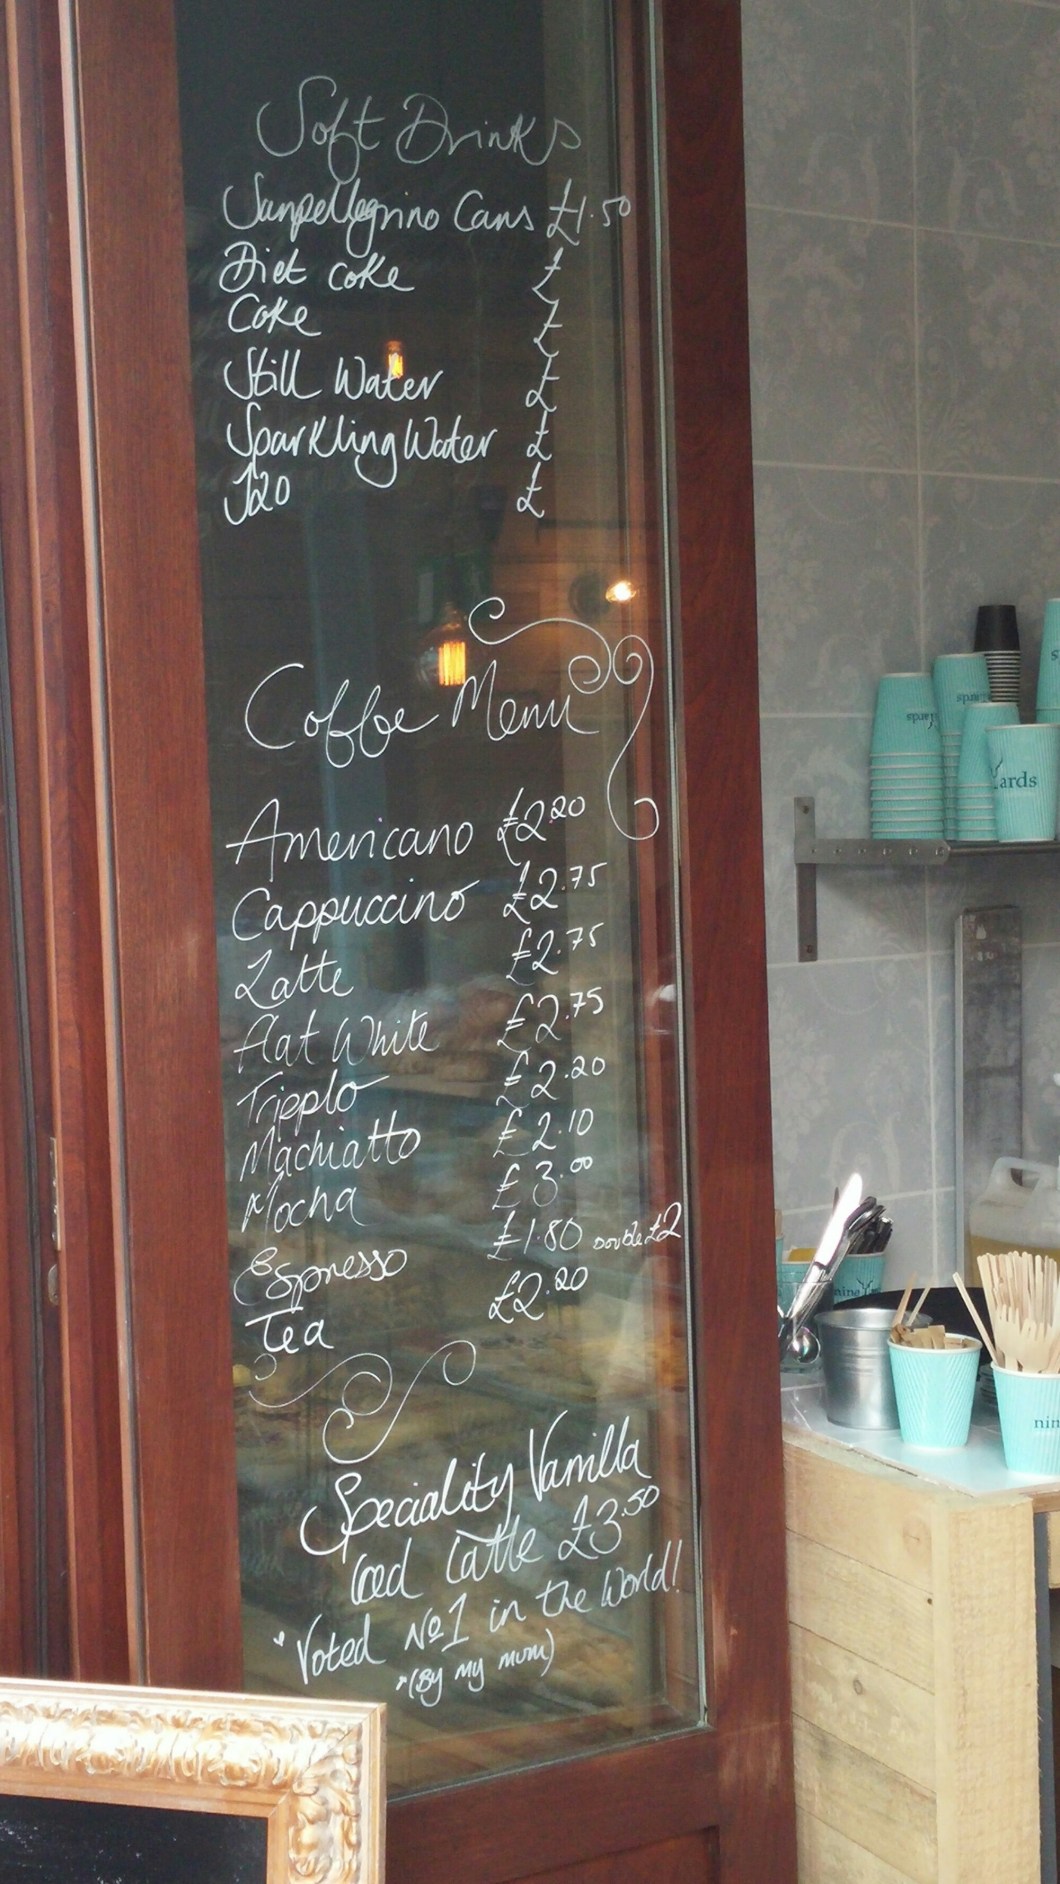 Soft Drinks
Sanpellegrino Cans £1.50
Diet coke £
Coke £
Still Water £
Sparkling Water £
J20 £
Coffee Menu
Americano £2.20
Cappuccino £2.75
Latte £2.75
Flat White £2.75
Tripplo £2.20
Machiatto £2.10
Mocha £3.00
Espresso £1.80 Double £2
Tea £2.20
Speciality Vanilla
Iced Latte £3.50
* Voted No1 in the World!
*(By my mum)
Yards
nine
nin